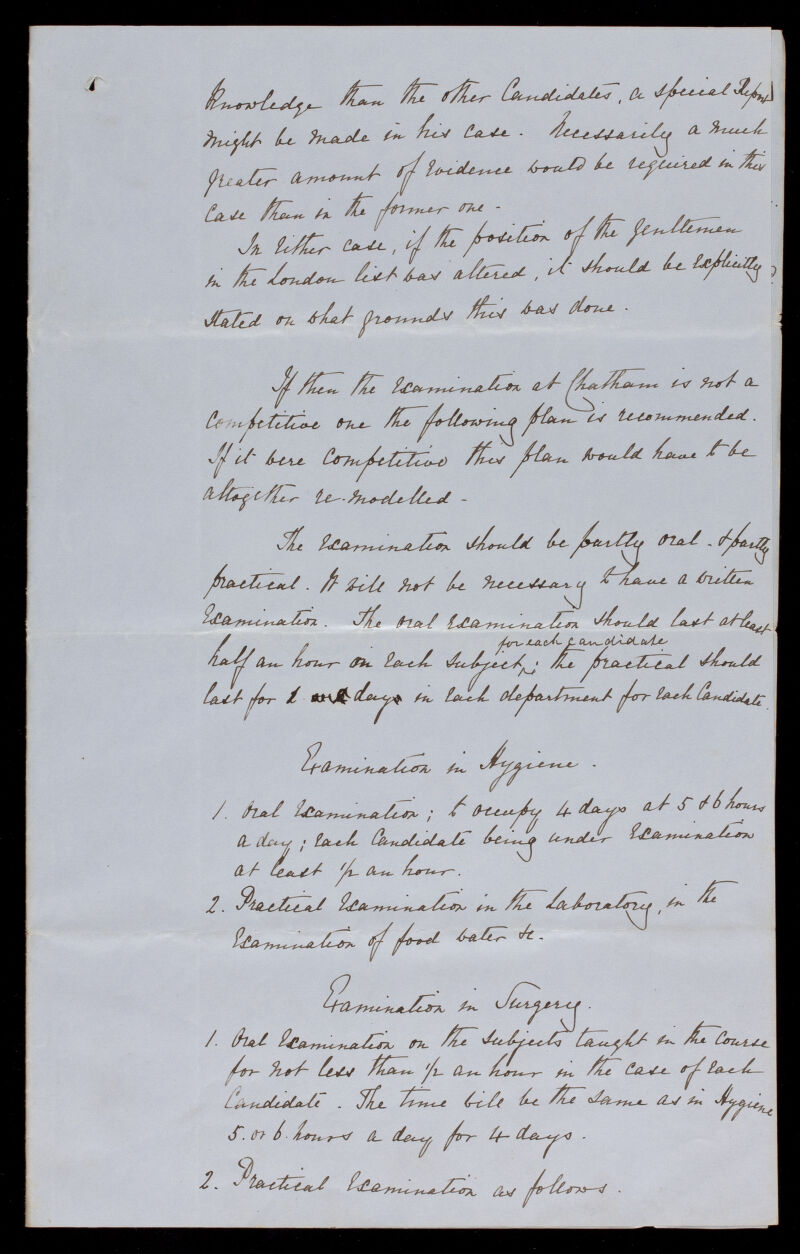 Knowledge than the other Candidates, a special Report
might be made in his case. Necessarily a much
greater amount of evidence would be required in this
case than in the former one.
In either case, if the position of the gentlemen
in the London list was altered, it should be explicitly
stated on what grounds this was done.
If then the examination at Chatham is not a
competitive one the following plan is recommended.
If it were competitive this plan would have to be
altogether re-modelled.
The examination should be partly oral - & partly
practical. It will not be necessary to have a written
examination. The oral examination should last at least
for each candidate
half an hour on each subject; the practical should
last for 1 day in each department for each Candidate.
Examination in Hygiene.
1. Oral examination; to occupy 4 days at 5 & 6 hours
a day; each Candidate being under examination
at least 1/2 an hour.
2. Practical examination in the Laboratory, in the
examination of food water &c.
Examination in Surgery.
1. Oral examination on the subjects taught in the course
for not less than 1/2 an hour in the case of each
Candidate. The time will be the same as in Hygiene
5. or 6. hours a day for 4 days.
2. Practical examination as follows.